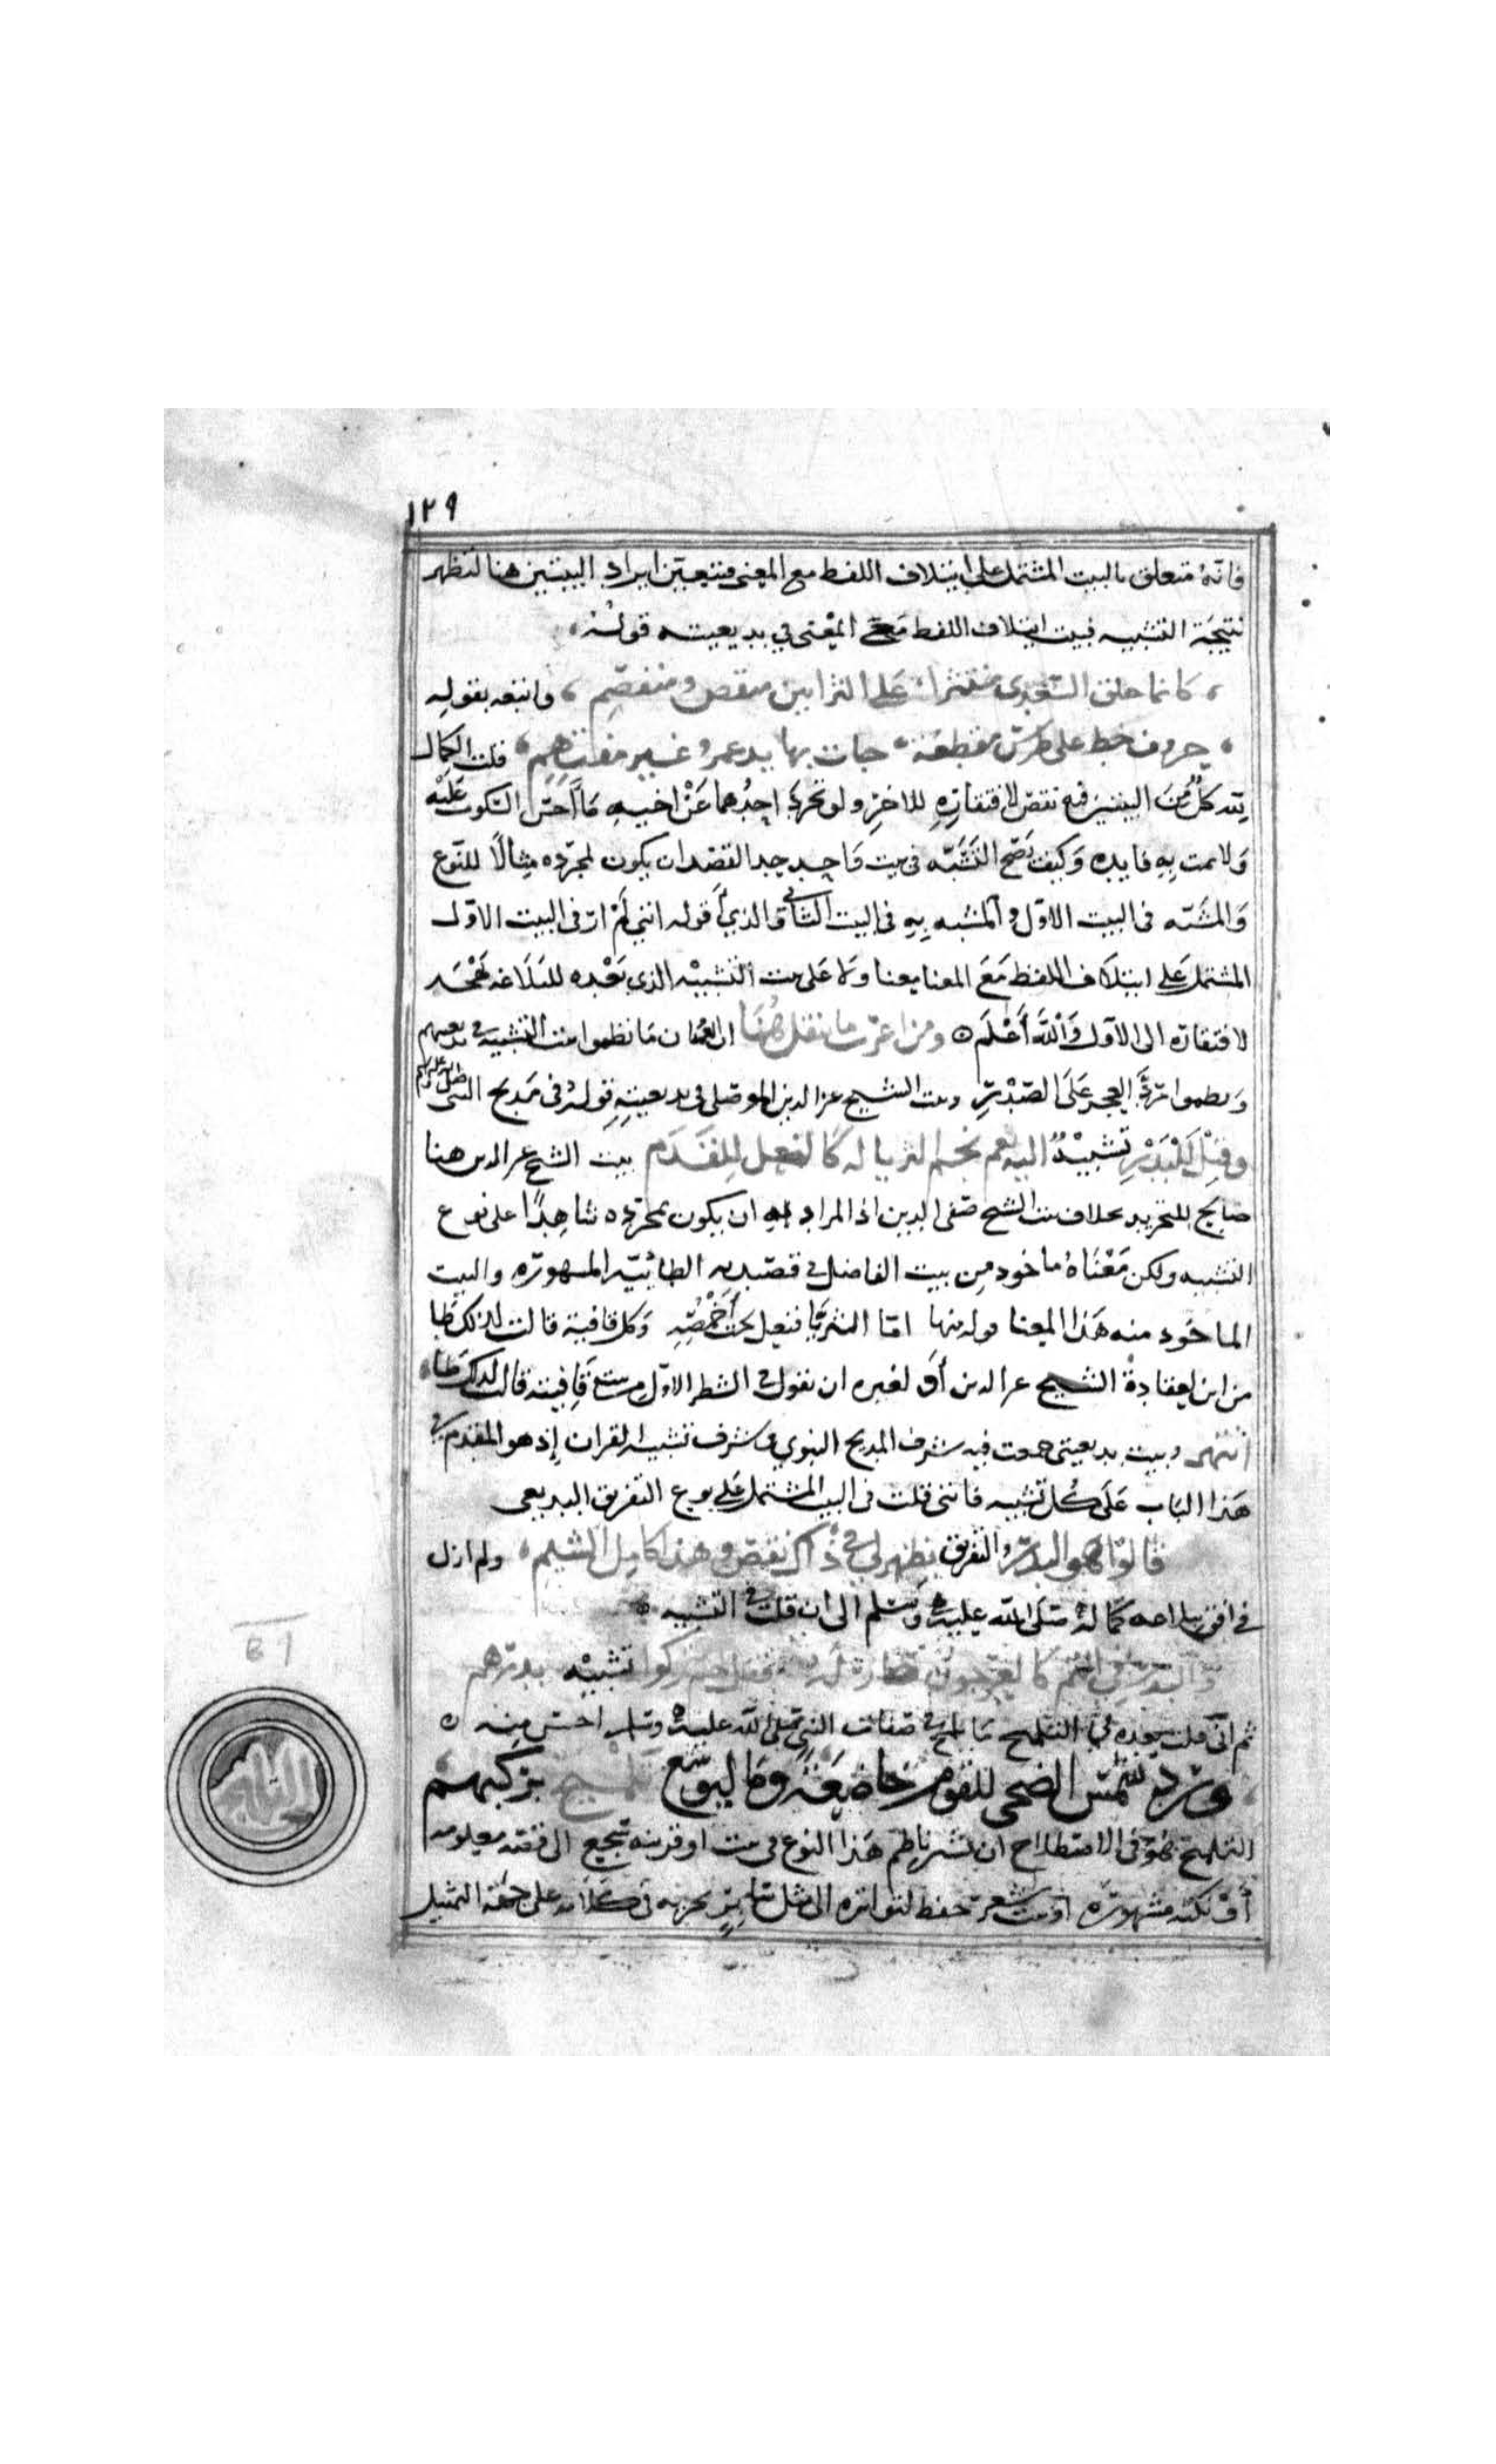 ١٢٩
فانه متعلق بالبيت المشتمل على ايتلاف اللفظ مع المعنى فتعين ايراد البيتين هنا لتظهر
نتيجة التشبيه فبيت ايتلاف اللفظ مع المعنى في بديعيته قوله
كانما حلق السعدى منتثرا على الثرا بين منقض ومنفصم واتبعه بقوله
حروف خط على طرس مقطعة جات بها يد غمر غير مفتهم قلت الكمال
لله كل من البيتين فيه نقص لافتقاره للاخر ولو تجرد احدهما عن اخيه ما احسن السكوت عليه
ولا تمت به فايده وكيف يصح التشبه في بيت واحد القصد ان يكون لمجرده مثالا للنوع
والمشبه في البيت الاول والمشبه به في البيت الثاني والذي اقوله انني لم ار في البيت الاول
المشتمل على ايتلاف اللفظ مع المعنا معنا ولا على بيت التشبيه الذي بعده للبلاغه
لافتقاره الى الاول والله أعلم ومن اغرب ما ينقل هنا ان العميان ما نظموا بيت التشبيه في بديعيتهم
ونظموا رد العجز على الصدر وبيت الشيخ عز الدين الموصلي في بديعيته قوله في مديح النبي صلى الله عليه وسلم
وقيل للبدر تشبيه اليه نعم نجم الثريا له كالنعل للقدم بيت الشيخ عز الدين هنا
صالح للتجريد بخلاف بيت الشيخ صفي الدين اذ المراد به ان يكون بمجرده شاهدا على نوع
التشبيه ولكن معناه ماخود من بيت الفاضل في قصيدته الطائية المشهوره والبيت
الماخود منه هذا المعنا قوله منها اما الثريا فنعل تحت أخمصه وكل قافية قالت لذلك طا
من اين لعقادة الشيخ عز الدين أو لغيره ان يقول في الشطر الاول من بيت قافيته قالت لذلك طا
انتهى وبيت بديعيتي جمعت فيه شرف المديح النبوي في شرف تشبيه القران إذ هو المقدم في
هذا الباب على كل تشبيه فانني قلت في البيت المشتمل على نوع التفريق البديعي
قالوا هو البدر والتفريق يظهر لي في ذاك نقص وهذا كامل الشيم ولم ازل
في افق كماله صلى الله عليه وسلم الى ان قلت في التشبيه
والبدر في التم كالعرجون صار له فقل لهم يتركوا تشبيه بدرهم
ثم اني قلت بعده في التلميح ما لمح في صفات النبي صلى الله عليه وسلم احسن منه
ورد شمس الضحى للقوم خاضعة وما ليوشع تلميح بركبهم
التلميح هو في الاصطلاح ان يشير ناظم هذا النوع في بيت او قرينه سجع الى قصه معلومه
أو نكته مشهوره او بيت شعر حفظ لتواتره الى مثل ساير يجريه في كلامه على جهة التمثيل